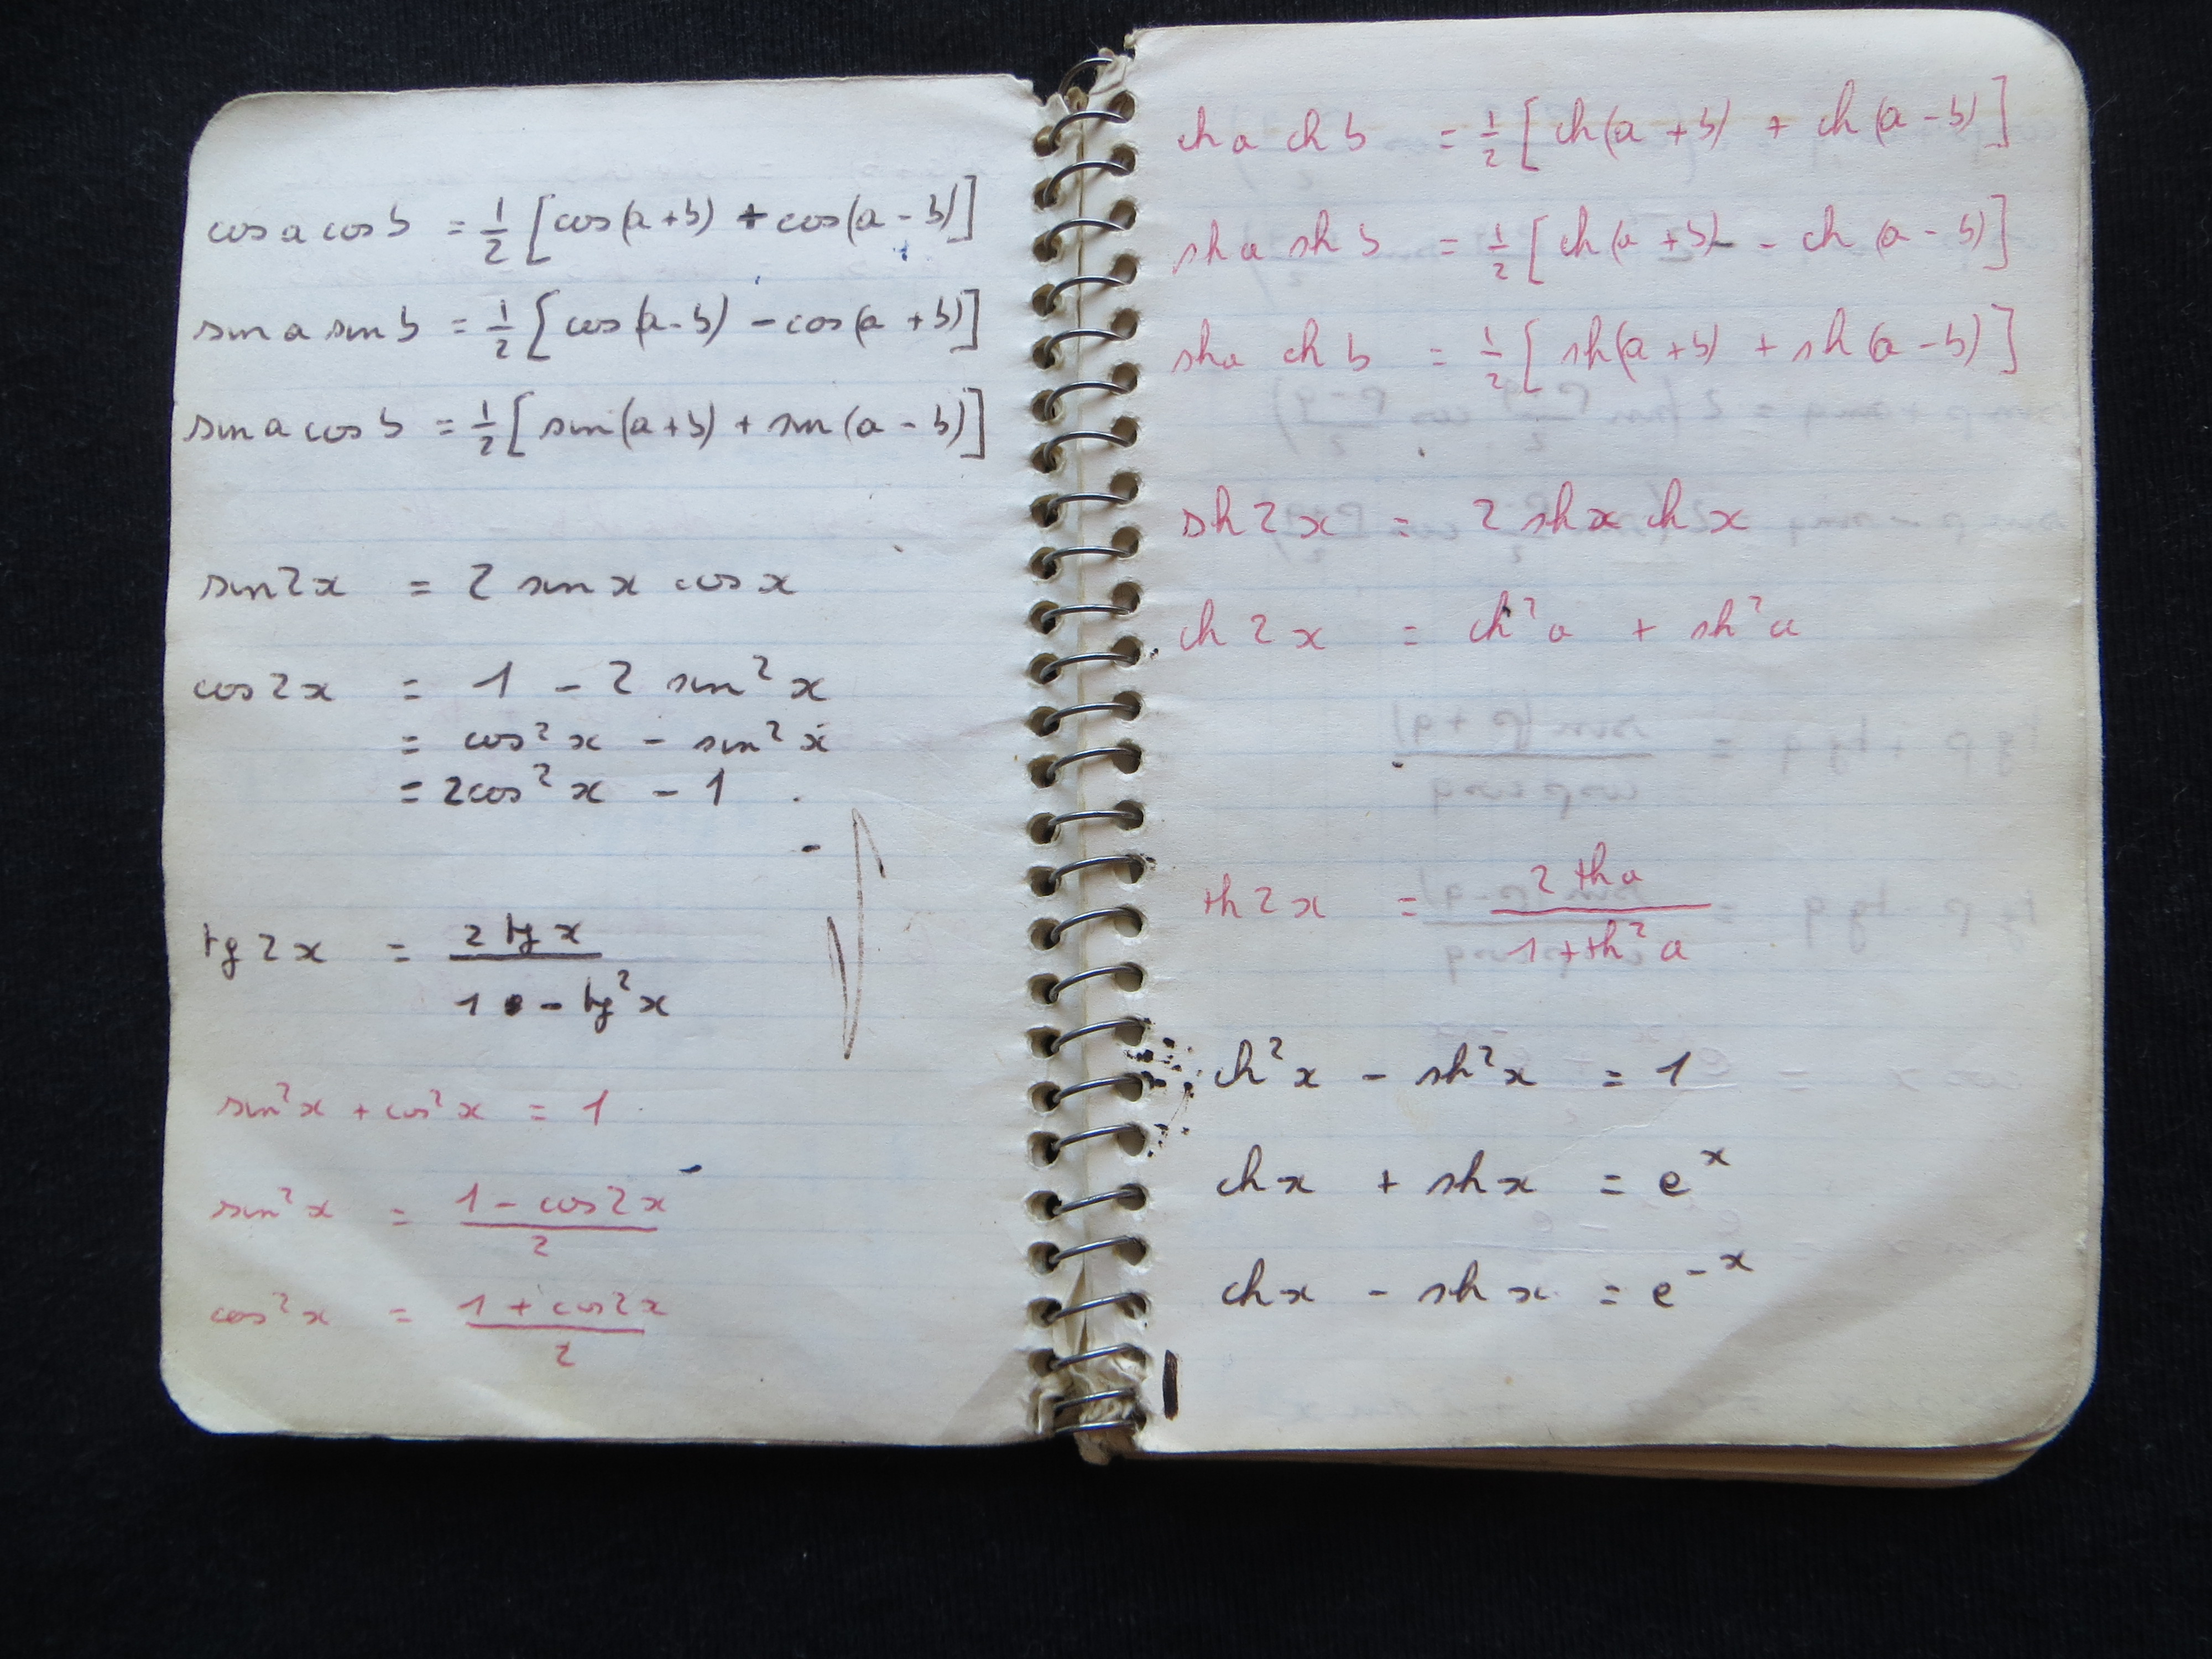 cos a cos b = 1/2 [cos(a+b) + cos(a-b)]
sin a sin b = 1/2 [cos(a-b) - cos(a+b)]
sin a cos b = 1/2 [sin(a+b) + sin(a-b)]
sin2x = 2 sin x cos x
cos2x = 1 - 2 sin²x
= cos²x - sin²x
= 2cos²x - 1
tg2x = 2 tg x / 1 - tg²x
sin²x + cos²x = 1
sin²x = 1 - cos2x / 2
cos²x = 1 + cos2x / 2
ch a ch b = 1/2 [ch(a+b) + ch(a-b)]
sh a sh b = 1/2 [ch(a+b) - ch(a-b)]
sh a ch b = 1/2 [sh(a+b) + sh(a-b)]
sh2x = 2 shx chx
ch2x = ch²a + sh²a
th2x = 2 th a / 1+th²a
ch²x - sh²x = 1
chx + shx = e^x
chx - shx = e^-x